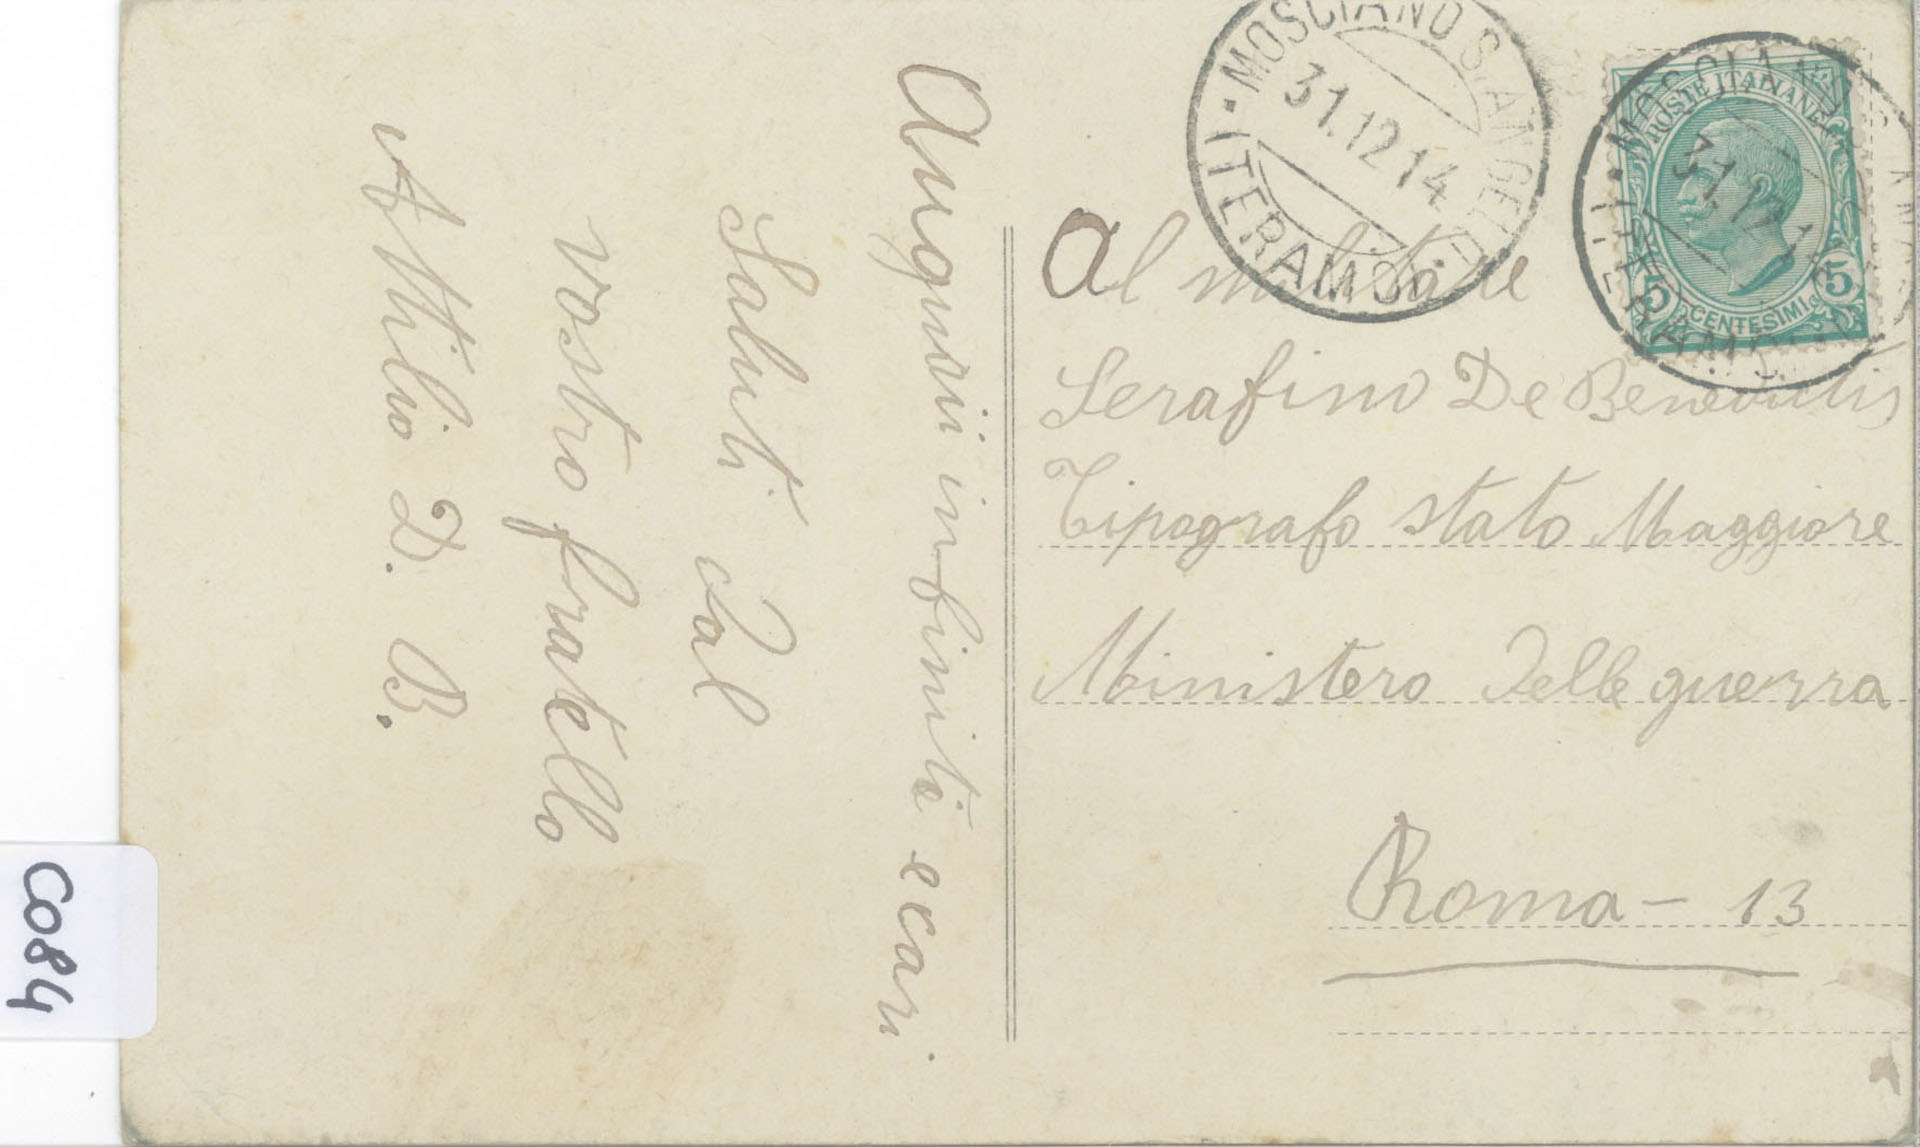 Auguri infiniti e cari
Saluti dal
vostro fratello
Attilio D. B.
MOSCIANO S. ANGELO
31.12.14
(TERAMO)
POSTE ITALIANE
5 CENTESIMI 5
MOSCIANO S. ANGELO
31.12.14
(TERAMO)
Al militare
Serafino De Benedictis
Tipografo stato Maggiore
Ministero delle guerra
Roma – 13
C084